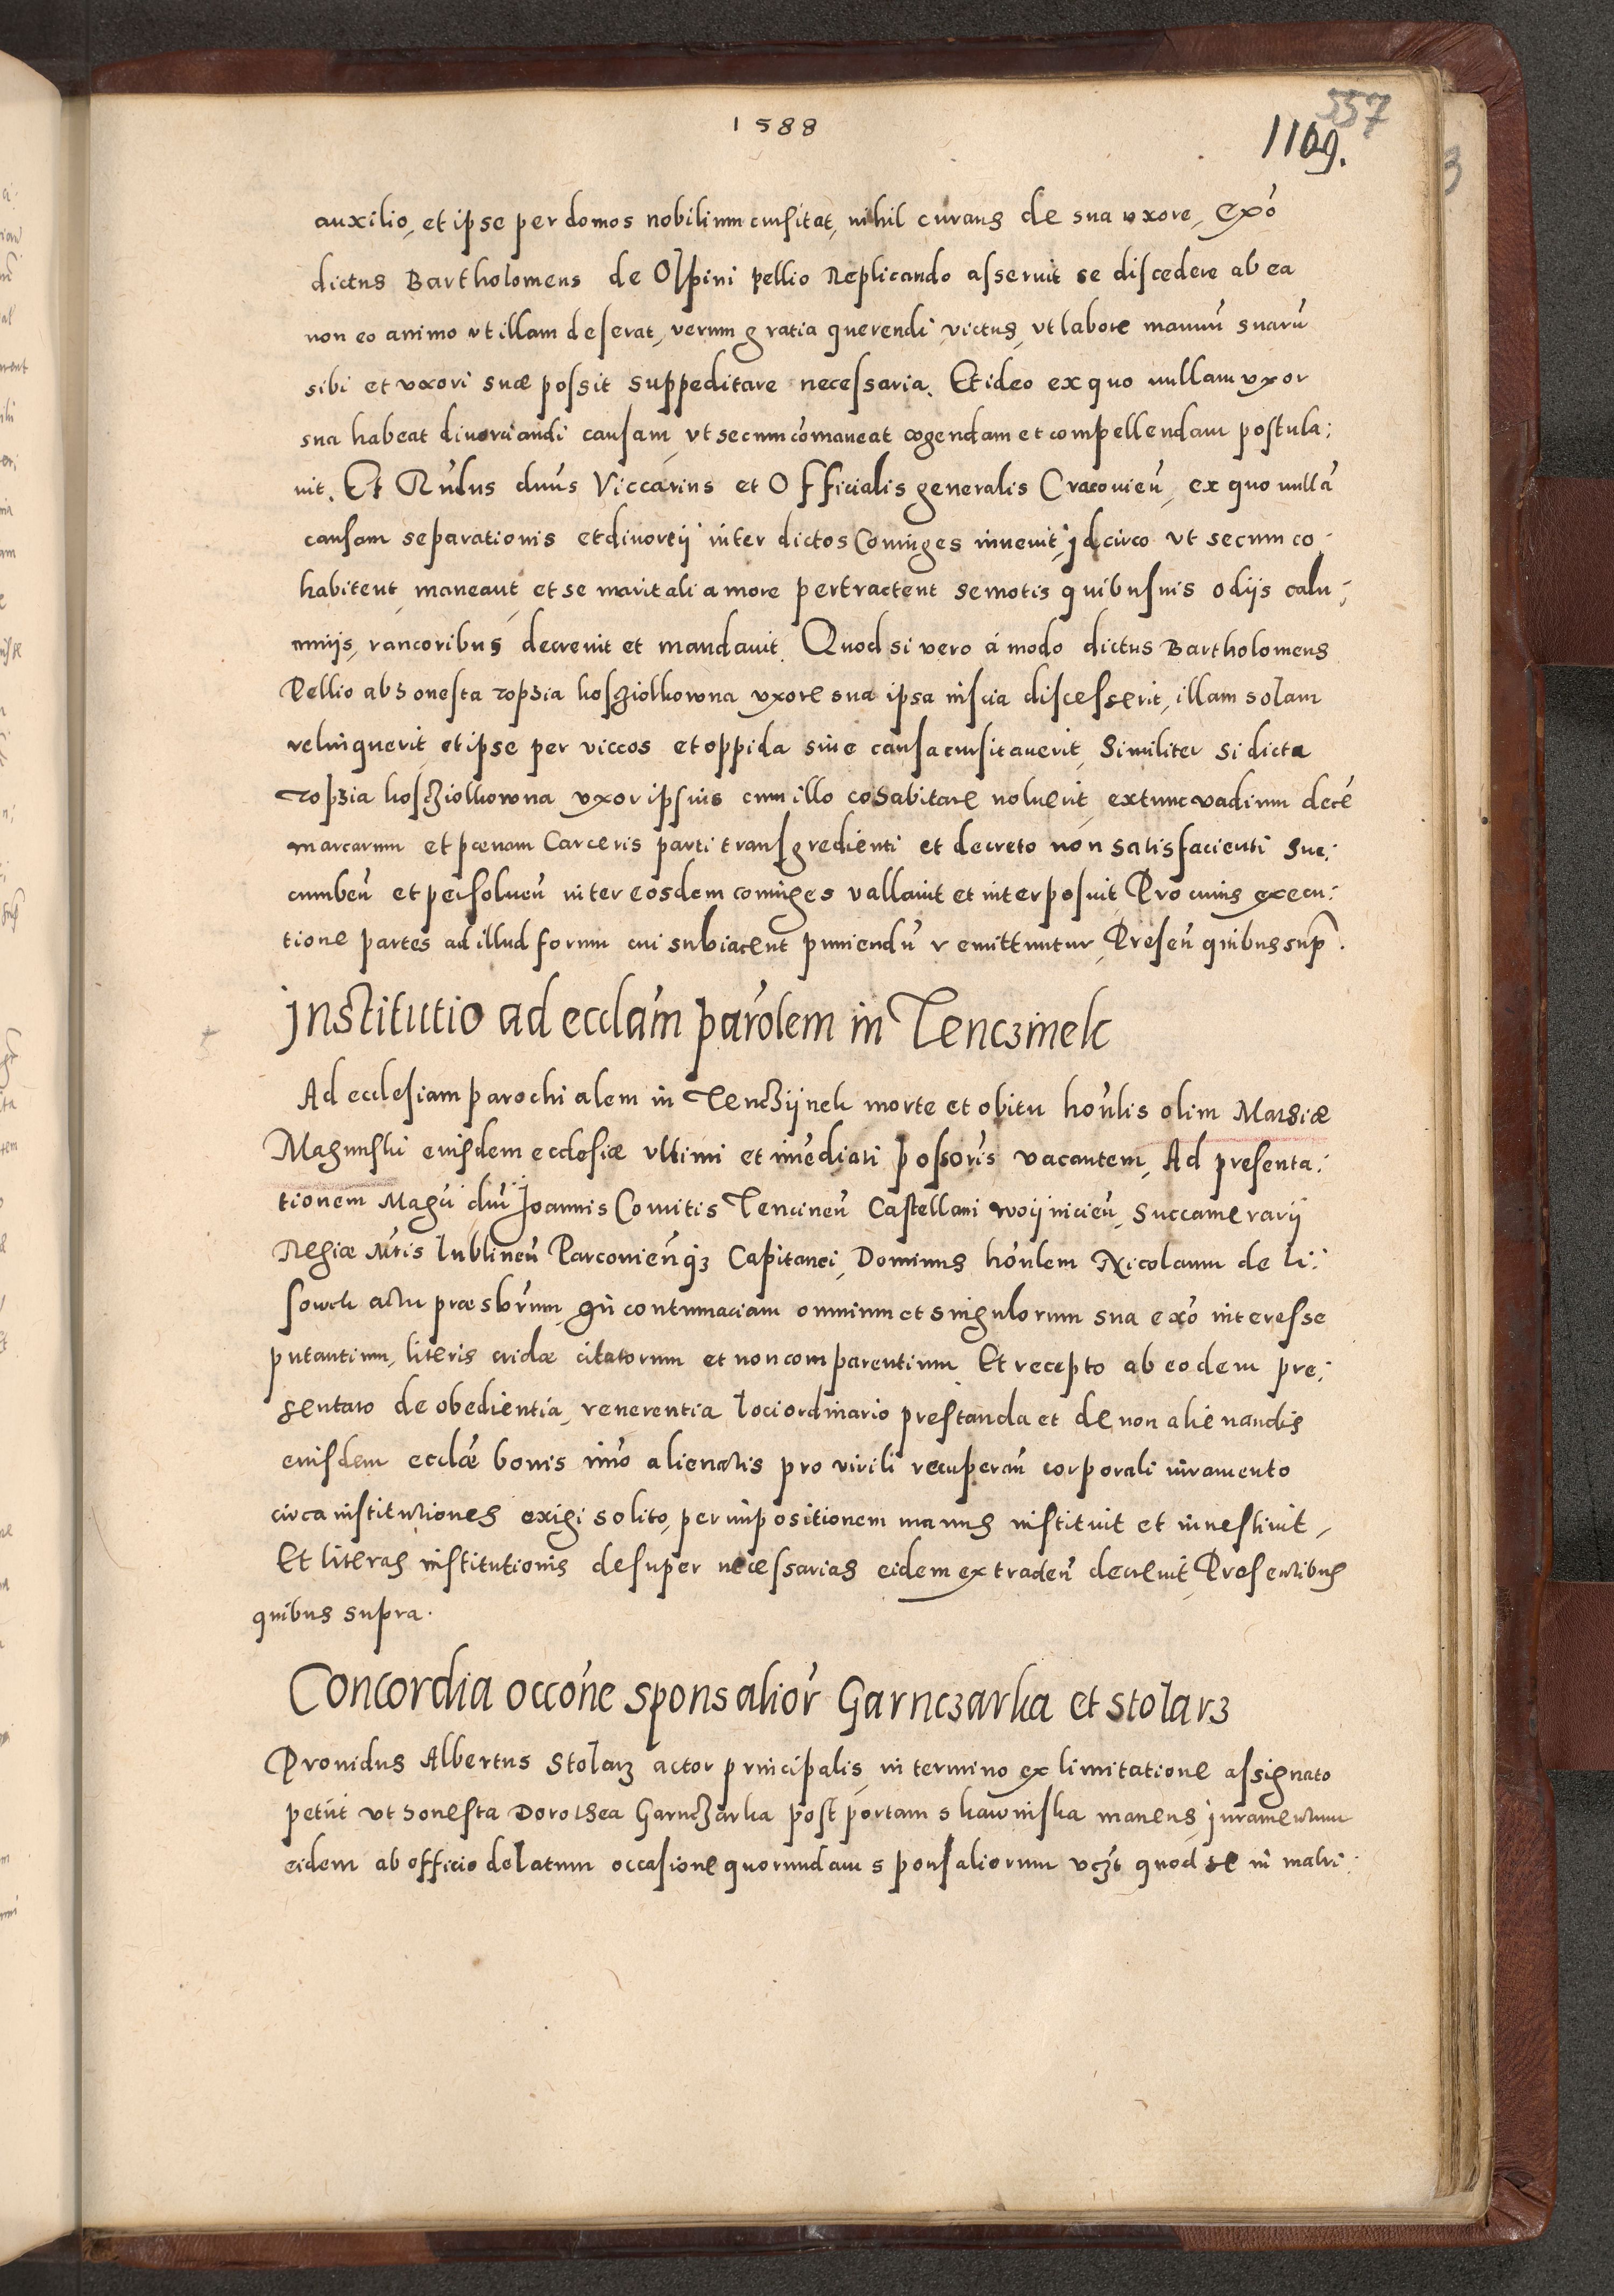 1588
557
1109.
auxilio, et ipse per domos nobilium cursitat, nihil curans de sua uxore, Exo
dictus Bartholomeus de Olpini pellio Replicando asseruit se discedere ab ea
non eo animo ut illam deserat, verum gratia querendi victus, ut labore manuu suaru
sibi et uxori suæ possit suppeditare necessaria. Et ideo ex quo nullam uxor
sua habeat divorciandi causam, ut secum comaneat cogendam et compellendam postula:
vit. Et Rndus dnus Viccarius et Officialis generalis Cracovien, ex quo nulla
causam separationis et divortij inter dictos Coniuges invenit, jdcirco ut secum co:
habitent, maneant, et se maritali amore pertractent semotis quibusvis odijs calu:
mnijs, rancoribus decrevit et mandavit. Quod si vero á modo dictus Bartholomeus
Pellio ab honesta Zophia kosziolkowna uxore sua ipsa inscia discesserit, illam solam
relinquerit, et ipse per viccos et oppida sine causa cursitaverit, Similiter si dicta
Zophia kosziolkowna uxor ipsius cum illo cohabitare noluerit, extunc vadium decē
marcarum et pœnam Carceris parti transgredienti et decreto non satisfacienti suc:
cumben et persolven inter eosdem coniuges vallavit et interposuit, Pro cuius execu:
tione partes ad illud forum cui subiacent puniendu remittuntur, Presen quibus sup.
Institutio ad ecclam parolem in Tenczinek
Ad ecclesiam parochialem in Tenczijnek morte et obitu honlis olim Mathiæ
Magunski eiusdem ecclesiæ ultimi et imediati possoris vacantem, Ad presenta:
tionem Magci dni Joannis Comitis Tencinen Castellani woijnicien, Succamerarij
Regiæ Mtis lublinen Parcovienqz Capitanei, Dominus honlem Nicolaum de li:
sowek actu præsbrum, in contumaciam omnium et singulorum sua exo interesse
putantium, literis cridæ citatorum et non comparentium Et recepto ab eodem pre:
sentato de obedientia, reverentia loci ordinario prestanda et de non alienandis
eiusdem ecclæ bonis imo alienatis pro virili recuperan corporali iuramento
circa institutiones exigi solito, per impositionem manus instituit et investivit,
Et literas institutionis desuper necessarias eidem extraden decrevit, Presentibus
quibus supra.
Concordia occone sponsalior Garnczarka et Stolarz
Providus Albertus Stolarz actor principalis, in termino ex limitatione assignato
petiit ut honesta Dorothea Garnczarka post portam Skawinska manens, juramentum
eidem ab officio delatum occasione quorundam sponsaliorum vczt quod se in matri: